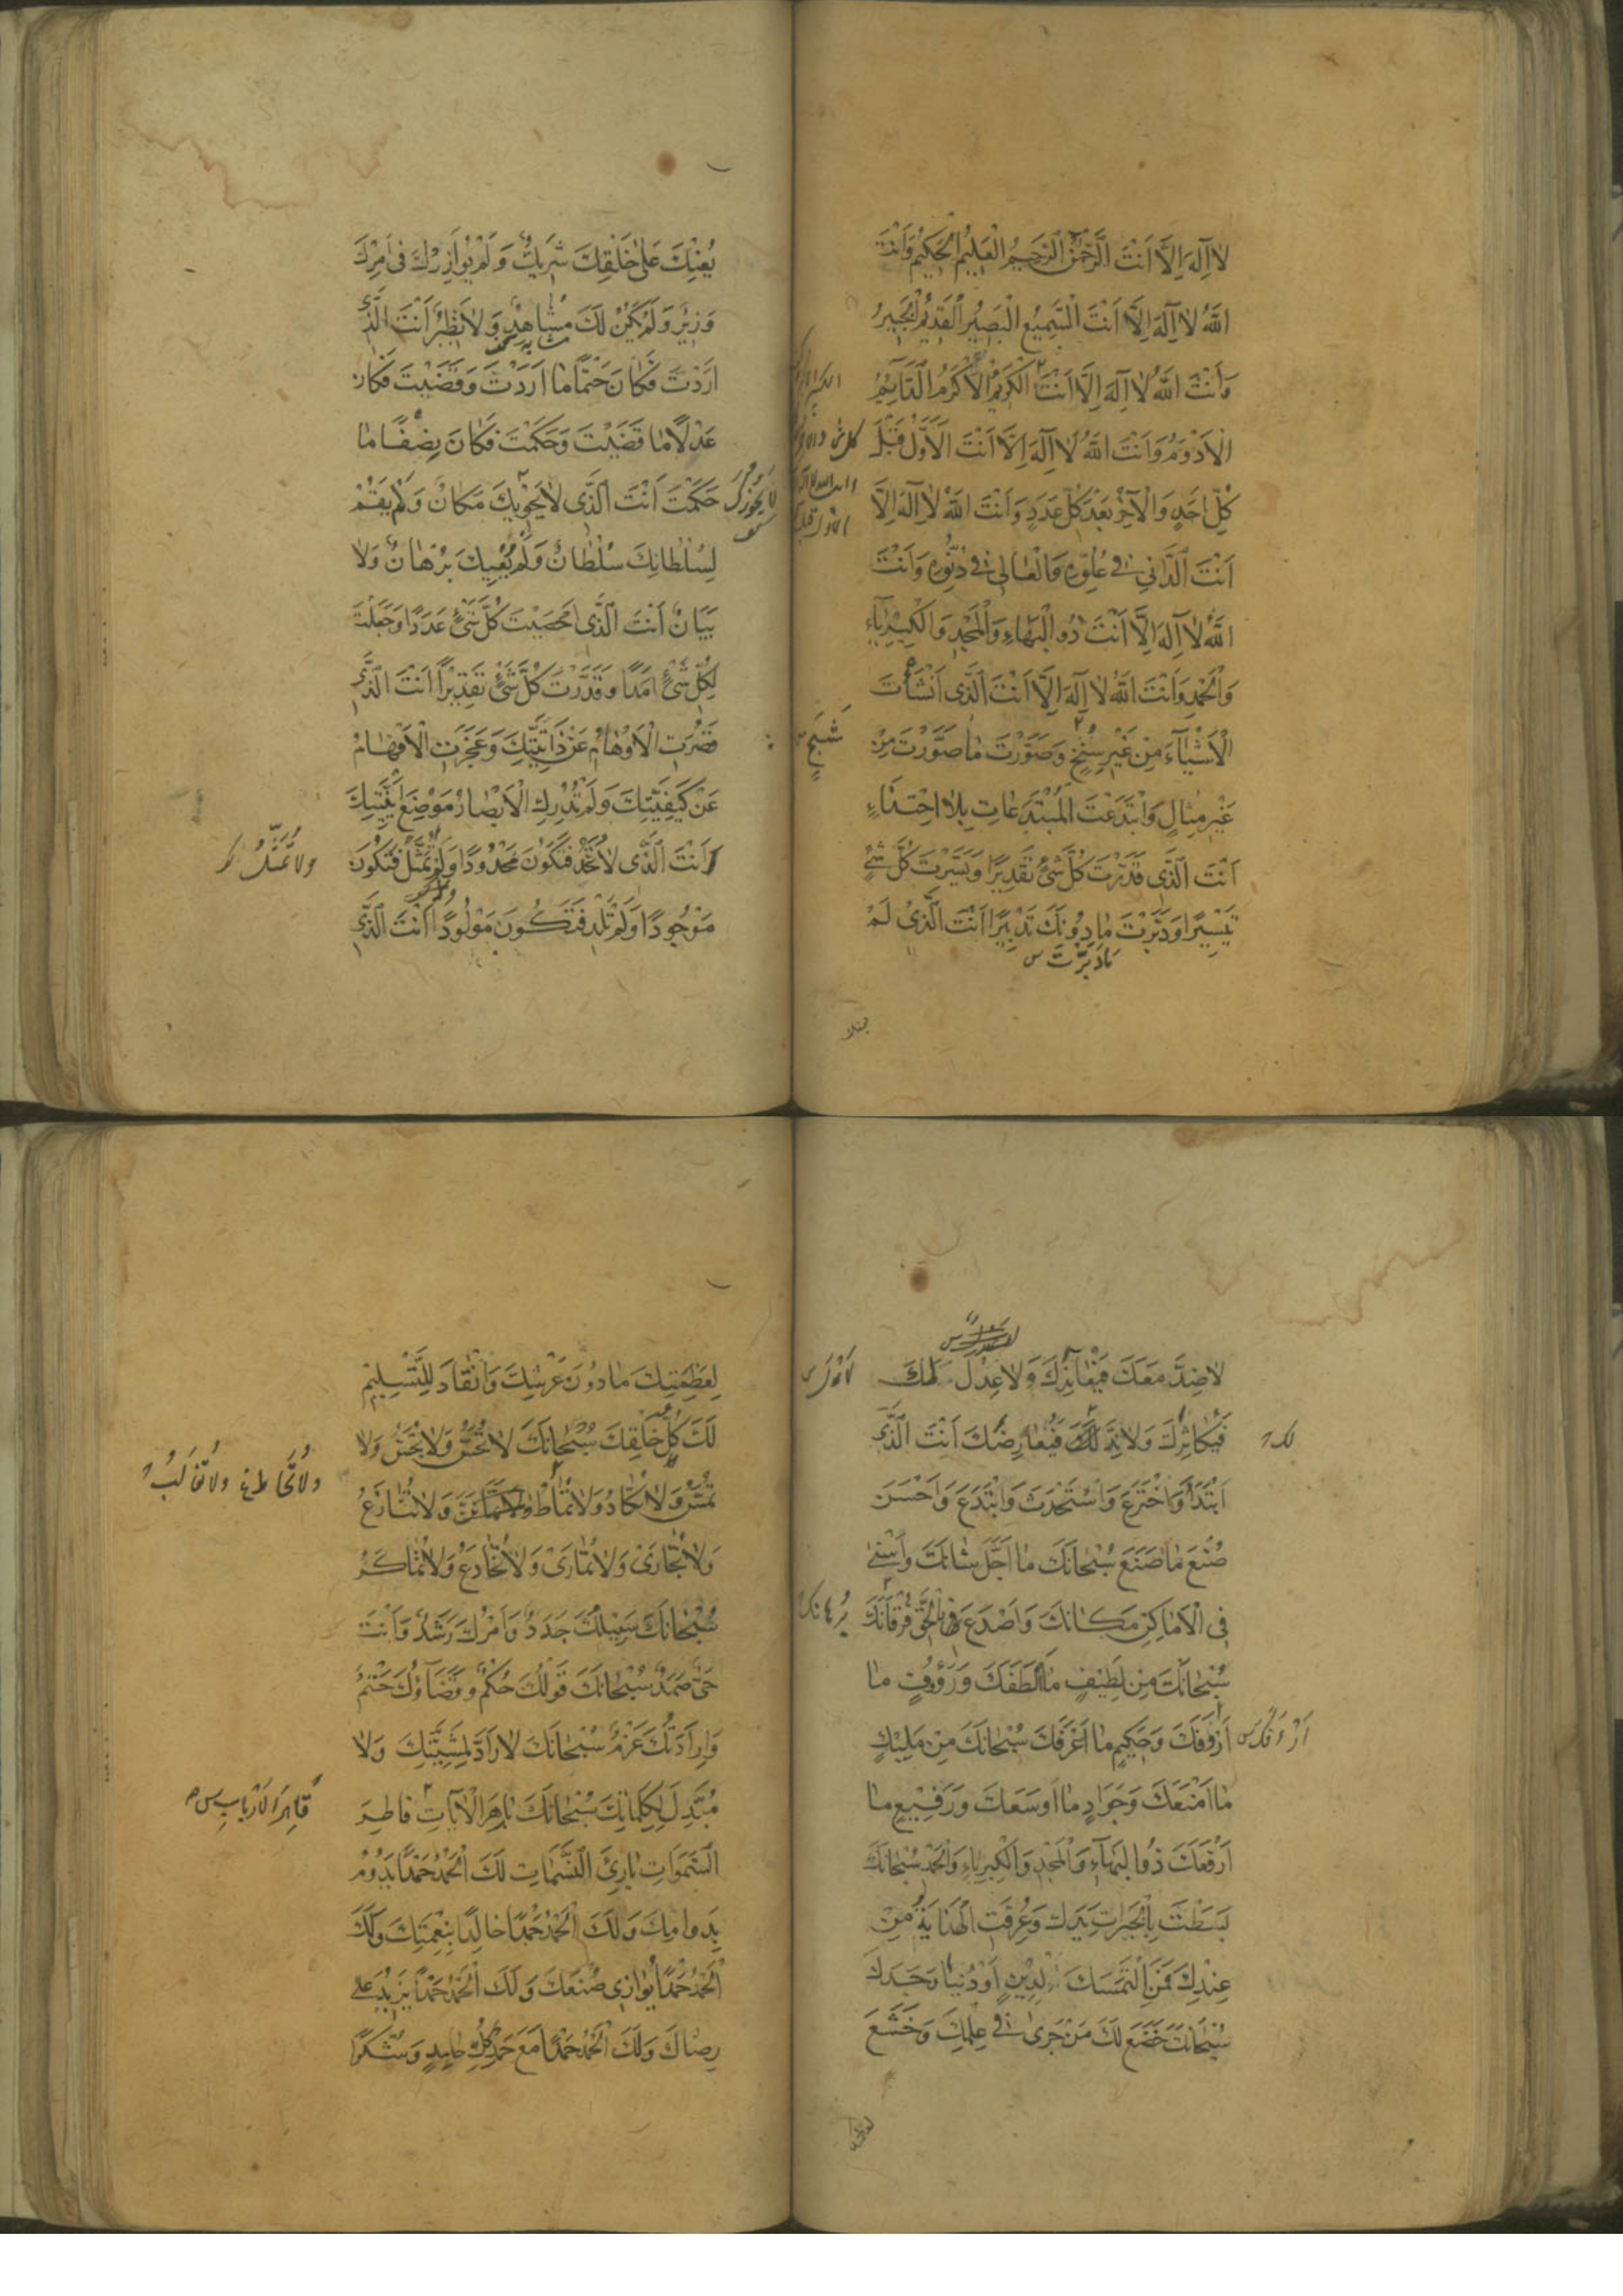 لَا اِلٰهَ اِلَّا اَنْتَ الرَّحْمٰنُ الرَّحِيمُ الْعَلِيمُ الْحَكِيمُ وَاَنْتَ
اللّٰهُ لَا اِلٰهَ اِلَّا اَنْتَ السَّمِيعُ الْبَصِيرُ الْقَدِيمُ الْخَبِيرُ
وَاَنْتَ اللّٰهُ لَا اِلٰهَ اِلَّا اَنْتَ الْكَرِيمُ الْاَكْرَمُ الدَّائِمُ
الْاَدْوَمُ وَاَنْتَ اللّٰهُ لَا اِلٰهَ اِلَّا اَنْتَ الْاَوَّلُ قَبْلَ
كُلِّ اَحَدٍ وَالْآخِرُ بَعْدَ كُلِّ عَدَدٍ وَاَنْتَ اللّٰهُ لَا اِلٰهَ اِلَّا
اَنْتَ الدَّانِي فِي عُلُوِّهِ وَالْعَالِي فِي دُنُوِّهِ وَاَنْتَ
اللّٰهُ لَا اِلٰهَ اِلَّا اَنْتَ ذُو الْبَهَاءِ وَالْمَجْدِ وَالْكِبْرِيَاءِ
وَالْحَمْدِ وَاَنْتَ اللّٰهُ لَا اِلٰهَ اِلَّا اَنْتَ الَّذِي اَنْشَأْتَ
الْاَشْيَآءَ مِنْ غَيْرِ سِنْخٍ وَصَوَّرْتَ مَا صَوَّرْتَ مِنْ
شَبَحٍ
غَيْرِ مِثَالٍ وَابْتَدَعْتَ الْمُبْتَدَعَاتِ بِلَا احْتِذَاءٍ
اَنْتَ الَّذِي قَدَّرْتَ كُلَّ شَيْءٍ تَقْدِيرًا وَيَسَّرْتَ كُلَّ شَيْءٍ
تَيْسِيرًا وَدَبَّرْتَ مَا دُونَكَ تَدْبِيرًا اَنْتَ الَّذِي لَمْ
مَا دَبَّرْتَ س
يُعِنْكَ عَلَى خَلْقِكَ شَرِيكٌ وَلَمْ يُوَازِرْكَ فِي اَمْرِكَ
وَزِيرٌ وَلَمْ يَكُنْ لَكَ مُشَاهِدٌ وَلَا نَظِيرٌ اَنْتَ الَّذِي
اَرَدْتَ فَكَانَ حَتْمًا مَا اَرَدْتَ وَقَضَيْتَ فَكَانَ
عَدْلًا مَا قَضَيْتَ وَحَكَمْتَ فَكَانَ نِصْفًا مَا
حَكَمْتَ اَنْتَ الَّذِي لَا يَحْوِيكَ مَكَانٌ وَلَمْ يَقُمْ
لِسُلْطَانِكَ سُلْطَانٌ وَلَمْ يُعْيِكَ بُرْهَانٌ وَلَا
بَيَانٌ اَنْتَ الَّذِي اَحْصَيْتَ كُلَّ شَيْءٍ عَدَدًا وَجَعَلْتَ
لِكُلِّ شَيْءٍ اَمَدًا وَقَدَّرْتَ كُلَّ شَيْءٍ تَقْدِيرًا اَنْتَ الَّذِي
قَصُرَتِ الْاَوْهَامُ عَنْ ذَاتِيَّتِكَ وَعَجَزَتِ الْاَفْهَامُ
عَنْ كَيْفِيَّتِكَ وَلَمْ تُدْرِكِ الْاَبْصَارُ مَوْضِعَ اَيْنِيَّتِكَ
اَنْتَ الَّذِي لَا تُحَدُّ فَتَكُونَ مَحْدُودًا وَلَمْ تُمَثَّلْ فَتَكُونَ
مَوْجُودًا وَلَمْ تَلِدْ فَتَكُونَ مَوْلُودًا اَنْتَ الَّذِي
لَا ضِدَّ مَعَكَ فَيُعَانِدَكَ وَلَا عِدْلَ لَكَ
فَيُكَاثِرَكَ وَلَا نِدَّ لَكَ فَيُعَارِضَكَ اَنْتَ الَّذِي
ابْتَدَأَ وَاخْتَرَعَ وَاسْتَحْدَثَ وَابْتَدَعَ وَاَحْسَنَ
صُنْعَ مَا صَنَعَ سُبْحَانَكَ مَا اَجَلَّ شَانَكَ وَاَسْنٰى
فِي الْاَمَاكِنِ مَكَانَكَ وَاَصْدَعَ بِالْحَقِّ فُرْقَانَكَ
سُبْحَانَكَ مِنْ لَطِيفٍ مَا اَلْطَفَكَ وَرَؤُوفٍ مَا
اَرْأَفَكَ وَحَكِيمٍ مَا اَعْرَفَكَ سُبْحَانَكَ مِنْ مَلِيكٍ
مَا اَمْنَعَكَ وَجَوَادٍ مَا اَوْسَعَكَ وَرَفِيعٍ مَا
اَرْفَعَكَ ذُو الْبَهَآءِ وَالْمَجْدِ وَالْكِبْرِيَاءِ وَالْحَمْدِ سُبْحَانَكَ
بَسَطْتَ بِالْخَيْرَاتِ يَدَكَ وَعُرِفَتِ الْهِدَايَةُ مِنْ
عِنْدِكَ فَمَنِ الْتَمَسَكَ لِدِينٍ اَوْ دُنْيَا وَجَدَكَ
سُبْحَانَكَ خَضَعَ لَكَ مَنْ جَرٰى فِي عِلْمِكَ وَخَشَعَ
لِعَظَمَتِكَ مَا دُونَ عَرْشِكَ وَانْقَادَ لِلتَّسْلِيمِ
لَكَ كُلُّ خَلْقِكَ سُبْحَانَكَ لَا تُحَسُّ وَلَا تُجَسُّ وَلَا
تُمَسُّ وَلَا تُكَادُ وَلَا تُمَاطُ وَلَا تُنَازَعُ
وَلَا تُجَارٰى وَلَا تُمَارٰى وَلَا تُخَادَعُ وَلَا تُمَاكَرُ
سُبْحَانَكَ سَبِيلُكَ جَدَدٌ وَاَمْرُكَ رَشَدٌ وَاَنْتَ
حَيٌّ صَمَدٌ سُبْحَانَكَ قَوْلُكَ حُكْمٌ وَقَضَآؤُكَ حَتْمٌ
وَاِرَادَتُكَ عَزْمٌ سُبْحَانَكَ لَا رَادَّ لِمَشِيَّتِكَ وَلَا
مُبَدِّلَ لِكَلِمَاتِكَ سُبْحَانَكَ بَاهِرَ الْآيَاتِ فَاطِرَ
قَاهِرَ الْاَرْبَابِ س
السَّمٰوَاتِ بَارِئَ النَّسَمَاتِ لَكَ الْحَمْدُ حَمْدًا يَدُومُ
بِدَوَامِكَ وَلَكَ الْحَمْدُ حَمْدًا خَالِدًا بِنِعْمَتِكَ وَلَكَ
الْحَمْدُ حَمْدًا يُوَازِي صُنْعَكَ وَلَكَ الْحَمْدُ حَمْدًا يَزِيدُ عَلٰى
رِضَاكَ وَلَكَ الْحَمْدُ حَمْدًا مَعَ حَمْدِ كُلِّ حَامِدٍ وَشُكْرًا